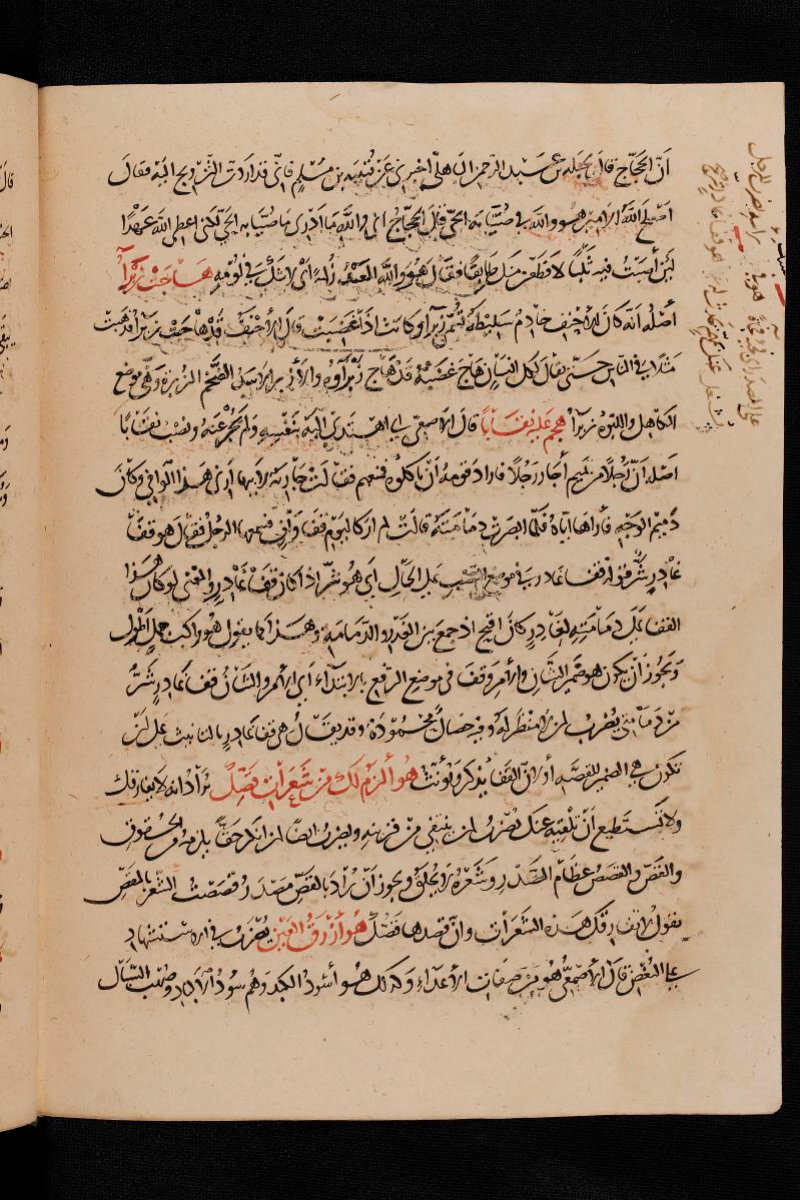 أنّ الحجّاج قال لجبلة بن عبد الرحمن الباهلي أخبرني عن قتيبة بن مسلم فإني قد أردت التزويج إليه فقال
أصلح الله الأمير هو والله في صيّابة الحيّ قال الحجّاج إني والله ما أدري ما صيّابة الحيّ لكني أعطي الله عهدًا
لئن أصبت فيه ثلبًا لأقطعنّ منك طابقًا فقال هو والله العبد زلمة أي لا شكّ في لؤمه هاجت زبراء
أصله أنه كان للأحنف خادم سليطة تسمّى زبراء وكانت إذا غضبت قال الأحنف قد هاجت زبراء فذهبت
مثلًا في الناس حتى يقال لكل إنسان هاج غضبه قد هاج زبراؤه والأزبر الأسد الضخم الزبرة وهي موضع
الكاهل واللبوة زبراء هجم عليه نقابًا قال الأصمعي أي اهتدى إليه بنفسه ولم يحُجْ عنه ونصب نقابًا
أصله أنّ رجلًا من تميم أجار رجلًا فأراد قومه أن يأكلوه فمنعهم فقالت جارية لأبيها أرني هذا الوافي وكان
دميم الوجه فأراها إياه فلمّا أبصرت دمامته قالت لم أر كاليوم قفا وافٍ فسمعها الرجل فقال هو قفا
غادر شرّ فقوله قفا غادر في موضع النصب على الحال أي هو شرّ إذا كان قفا غادر والمعنى لو كان هذا
القفا على دمامته لغادر كان أقبح إذ جمع بين الغدر والدمامة وهذا كما يقول هو راكبًا جمل أطول
ويجوز أن يكون هو ضمير الشأن والأمر وقفا في موضع الرفع بالابتداء أي الأمر والشأن قفا غادر شرّ
من دمامتي يضرب لمن لا منظر له وفيه خصال محمودة وقد يقال هي قفا غادر بالتأنيث على أن
تكون هي ضمير للقصّة أو لأنّ القفا يذكر ويؤنث هو ألزم لك من شعرات قصّك يراد أنه لا يفارقك
ولا تستطيع أن تلقيه عنك يضرب لمن ينتفي من قريبه ويضرب أيضًا لمن أنكر حقًّا يلزمه من الحقوق
والقصّ والقصص عظام الصدر وشعره لا يحلق ويجوز أن يراد بالقصّ مصدر قصصت الشعر بالمقصّ
يقول لا تفارقك هذه الشعرات وإن قصدها قصّك هو أزرق العين يضرب في الاستشهاد
على البغض قال الأصمعي هو من صفات الأعداء وكذلك هو أسود الكبد وهم سود الأكباد وصهب السبال